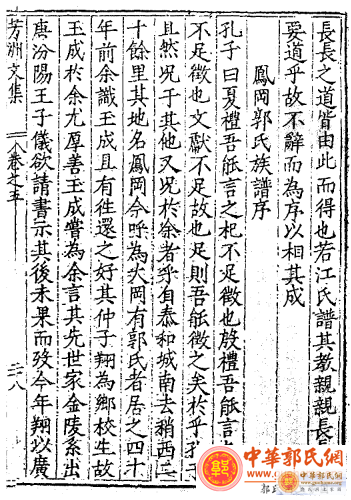 長長之道皆由此而得也若江氏譜其教親親長
要道乎故不辭而為序以相其成
鳳岡郭氏族譜序
孔子曰夏禮吾能言之杞不足徵也殷禮吾能言
不足徵也文獻不足故也足則吾能徵之矣於乎孔子
且然况于其他又况於余者乎自泰和城南去稍西二
十餘里其地名鳳岡今呼為火岡有郭氏者居之四十
年前余識玉成且有徃還之好其仲子翔為鄉校生故
玉成於余尤厚善玉成嘗為余言其先世家金陵系出
唐汾陽王子儀欲請書示其後未果而歿今年翔以廣
芳洲文集
卷之五
三八
中華郭氏網